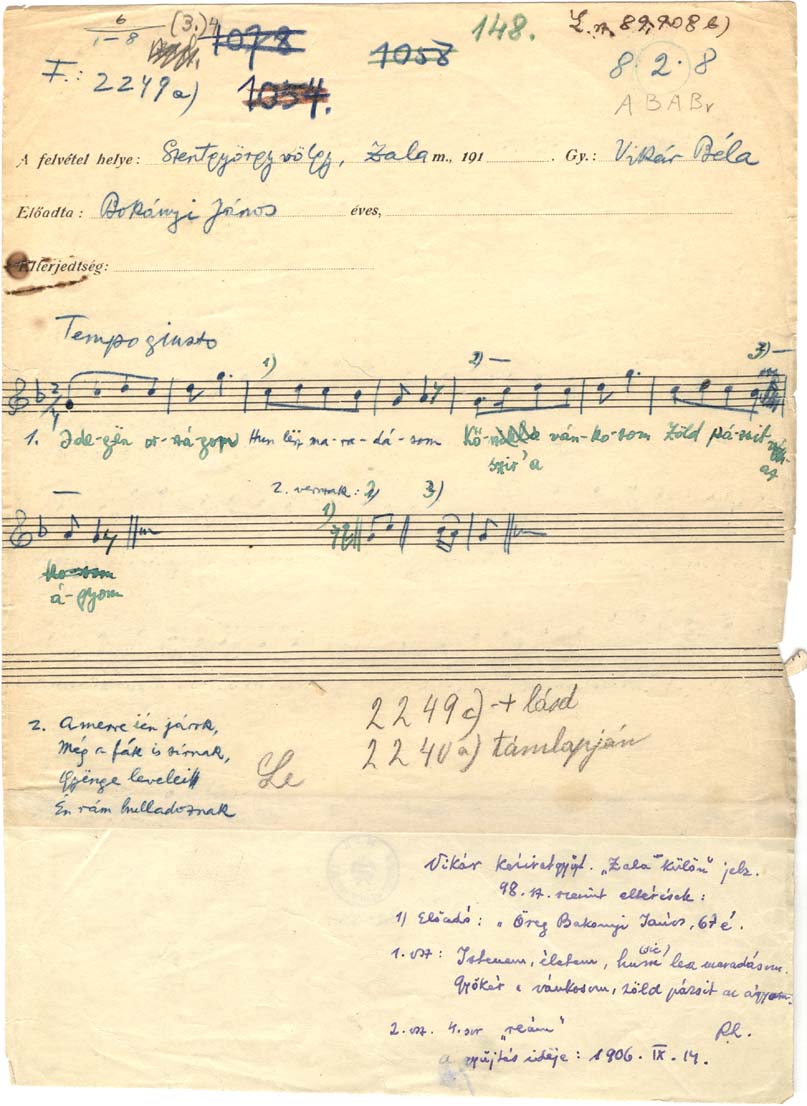 6 (3.) 4
1-8
1078
1058
148.
8 2. 8
F.: 2249a)
1054.
A B A Bv
A felvétel helye: Szentgyörgyvölgy, Zala m., 191 . Gy.: Vikár Béla
Előadta: Bokányi János éves,
Elterjedtség:
Tempo giusto
1) 2) 3)
1. Ide-gën or-szágom Hun lësz ma-ra-dá-som Kő- ván-ko-som Zöld pá-zsit az
szir'a
2. versszak: 2) 3)
1)
ko-som
á-gyom
2249c) + lásd
2240a) támlapján
2. Amerre ién járok,
Még a fák is sírnak,
Gyönge leveleik
Én rám hulladoznak
Le
Vikár kéziratgyűjt. "Zala" külön jelz.
98. sz. szerint eltérések:
1) Előadó: "Öreg Bakonyi János, 67 é.
(sic)
1. vsz: Istenem, életem, hunn lesz maradásom.
Gyökér a vánkosom, zöld pázsit az ágyam.
2. vsz. 4. sor "reám"
a gyűjtés ideje: 1906. IX. 14.